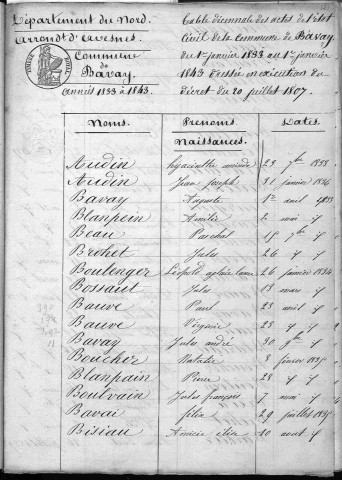 Département du Nord.
Arrondt d'avesnes.
Commune
de
Bavay.
années 1833 à 1843.
Table décennale des actes de l'état
Civil de la Commune de Bavay,
du 1er janvier 1833 au 1er janvier
1843 Dressée en exécution du
Décret du 20 juillet 1807.
Noms. Prénoms. Dates.
Naissances.
Audin hyacinthe 23 7bre 1833
Audin Jean joseph 31 janvier 1836
Bavay Auguste 1er avril 1833
Blanpain Amélie 2 mai id
Beau Paschal 15 7bre id
Brohet Jules 26 id id
Boulenger Léopold 26 janvier 1834
Bossaut Jules 13 mars id
Bauve Paul 23 avril id
Bauve Virginie 23 id id
Bavay Jules andré 30 9bre id
Boucher Natalie 8 février 1835
Blanpain Pierre 28 id id
Boulvain Jules françois 7 mai id
Bavai félix 29 juillet 1835
Bisiau Aimée élise 10 aout id